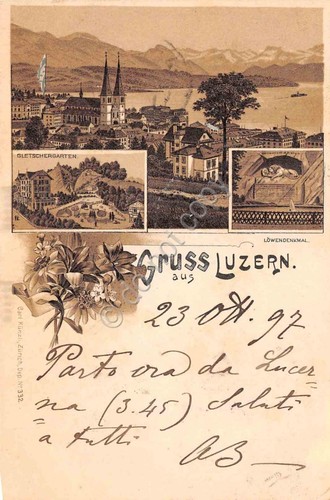 GLETSCHERGARTEN.
LÖWENDENKMAL.
GRUSS aus LUZERN.
23 Ott. 97
Parto ora da Lucer-
na (3.45) Saluti
a tutti
AB
Carl Künzli, Zürich, Dep. No 332.